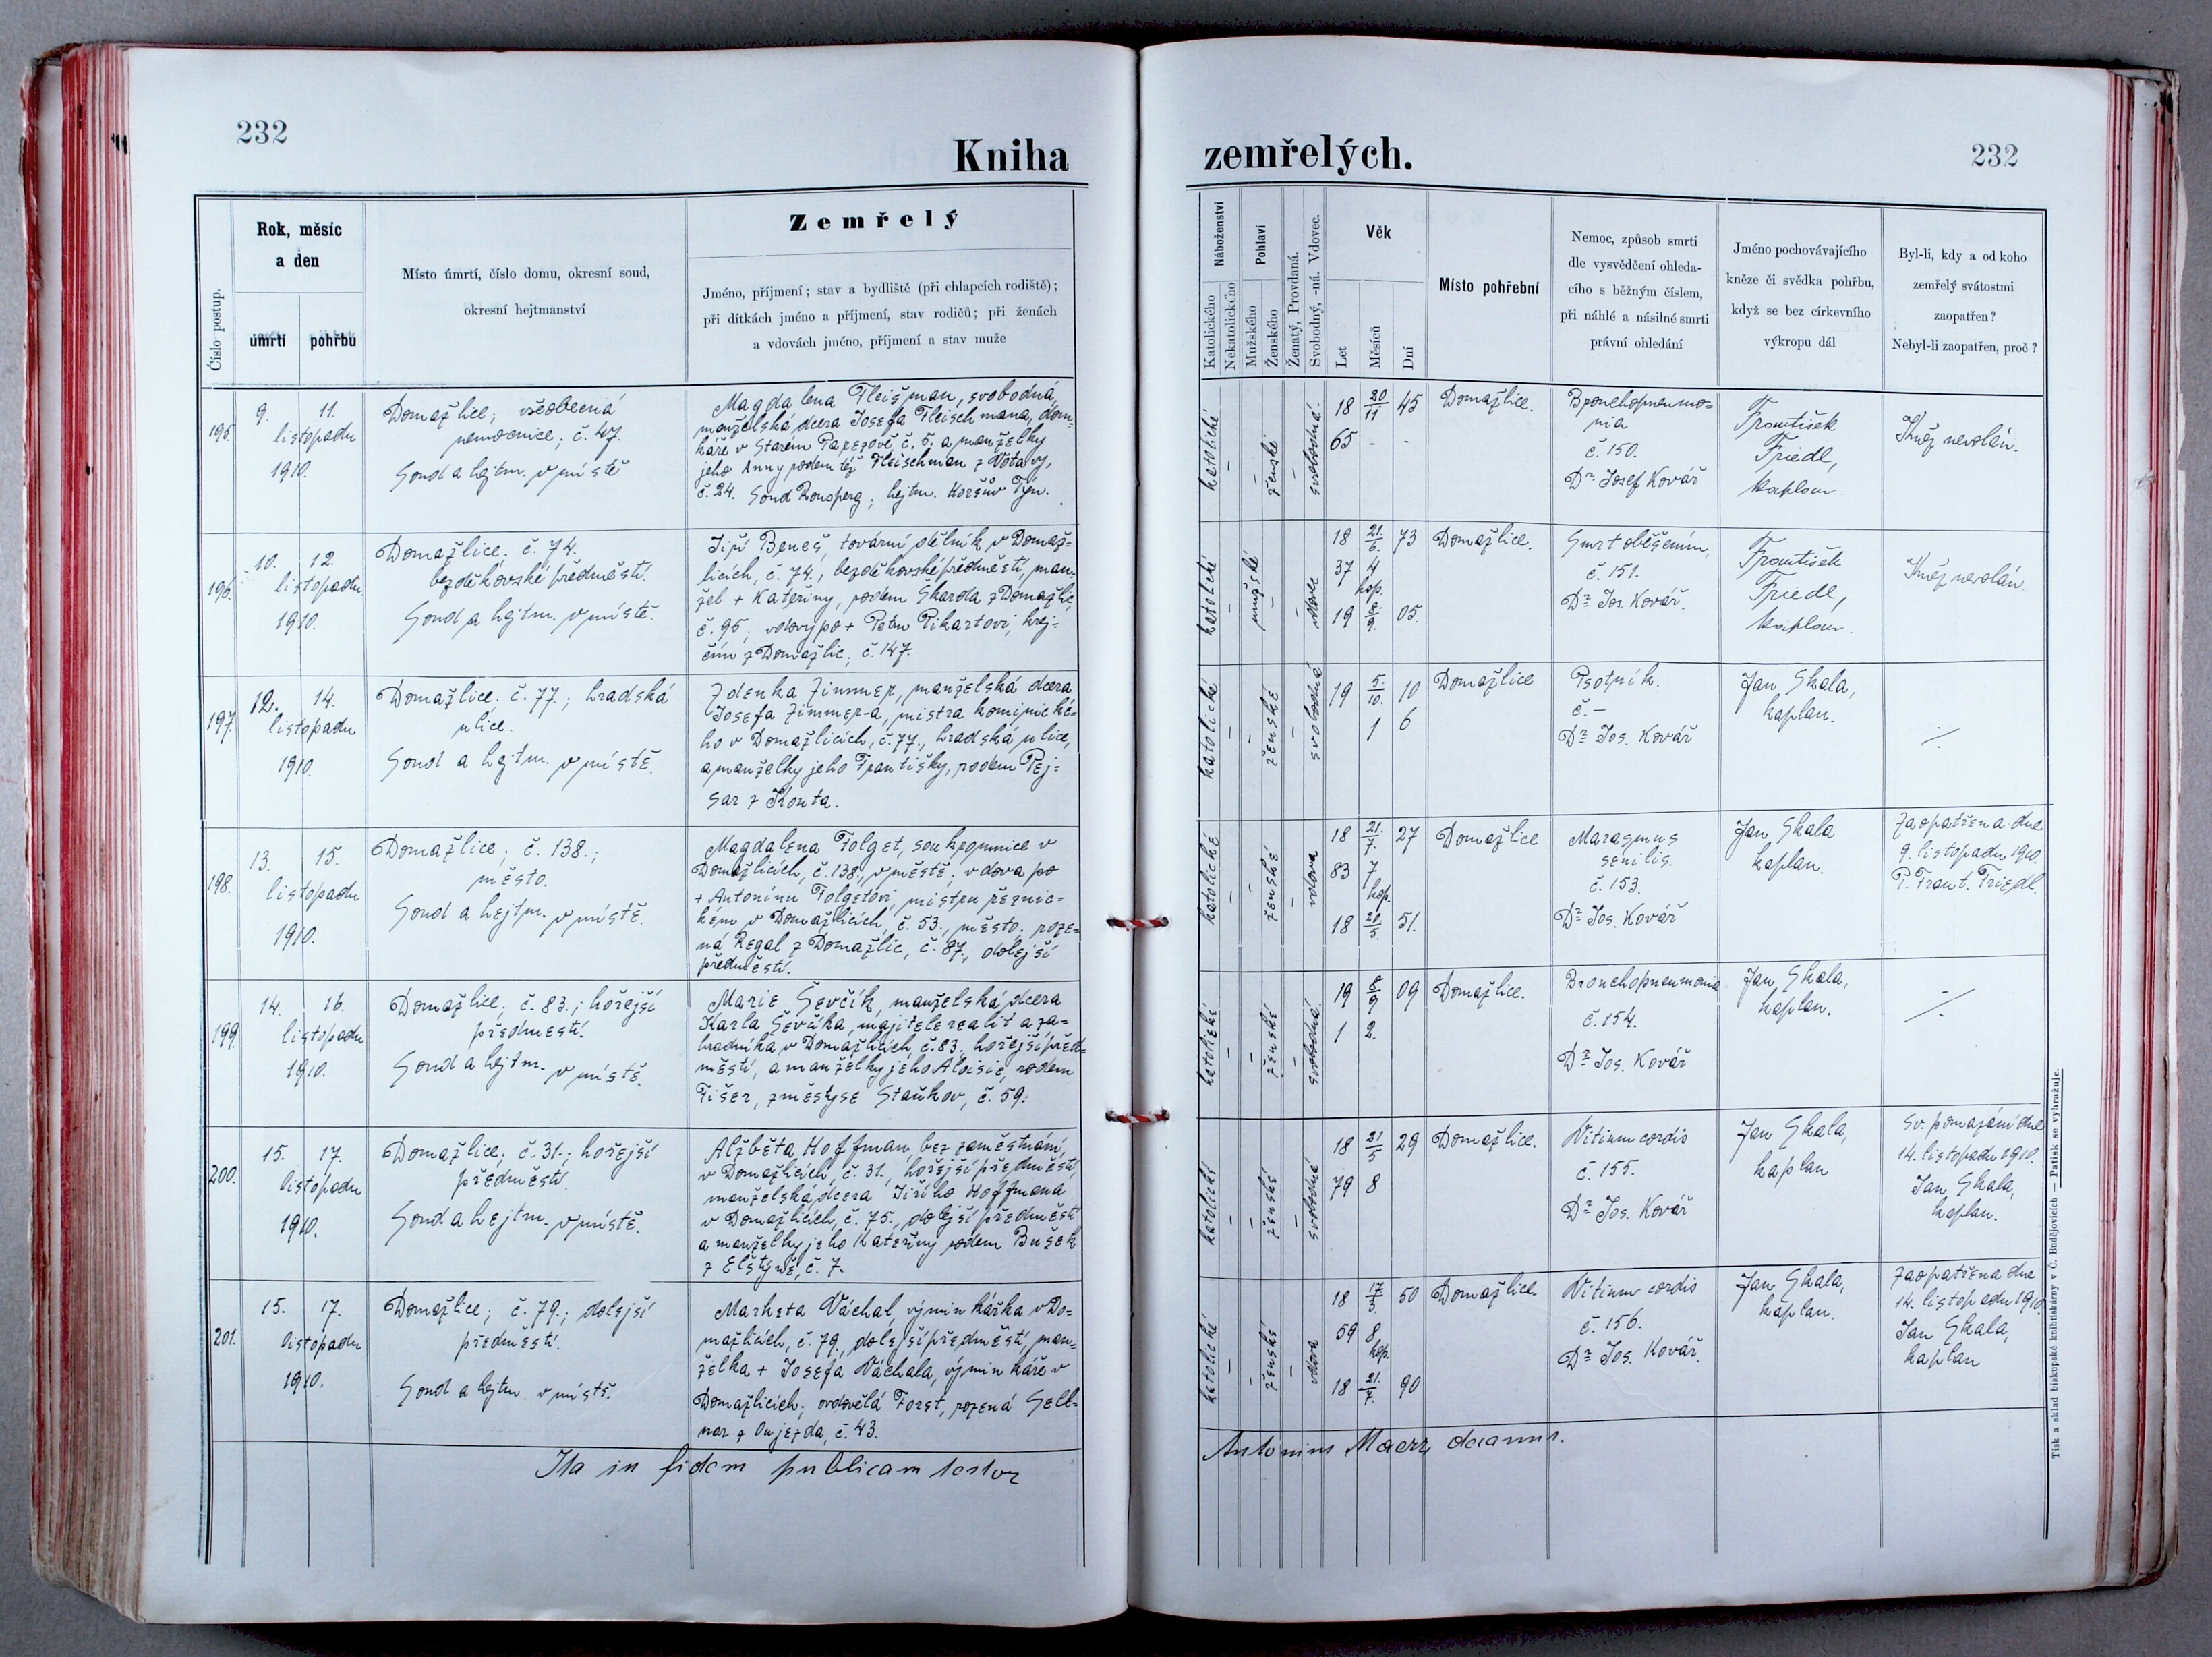 232
Kniha
Číslo postup.
Rok, měsíc
a den
úmrtí
pohřbu
Místo úmrtí, číslo domu, okresní soud,
okresní hejtmanství
Zemřelý
Jméno, příjmení; stav a bydliště (při chlapcích rodiště);
při dítkách jméno a příjmení, stav rodičů; při ženách
a vdovách jméno, příjmení a stav muže
195.
9. 11.
listopadu
1910.
Domažlice; všeobecná
nemocnice; č. 147.
Soud a hejtm. v místě
Magdalena Fleišman, svobodná,
manželská dcera Josefa Fleischmana, dom-
káře v Starém Pařezově č. 5. a manželky
jeho Anny rodem též Fleischman z Votavy,
č. 24. Soud Ronsperg; hejtm. Horšův Týn.
196.
10. 12.
listopadu
1910.
Domažlice. č. 74.
bezděkovské předměstí.
Soud a hejtm. v místě.
Jiří Beneš, tovární dělník v Domaž-
licích, č. 74., bezděkovské předměstí, man-
žel + Kateřiny, rodem Škarda z Domažlic,
č. 95; vdovy po + Petru Pikartovi, krej-
čím z Domažlic; č. 147.
197.
12. 14.
listopadu
1910.
Domažlice; č. 77.; hradská
ulice.
Soud a hejtm. v místě.
Zdenka Zimmer, manželská dcera
Josefa Zimmer-a, mistra kominické-
ho v Domažlicích, č. 77., hradská ulice,
a manželky jeho Františky, rodem Pej-
sar z Kouta.
198.
13. 15.
listopadu
1910.
Domažlice; č. 138.;
město.
Soud a hejtm. v místě.
Magdalena Folget, soukromnice v
Domažlicích, č. 138., v městě; vdova po
+ Antonínu Folgetovi, mistru řeznic-
kém v Domažlicích, č. 53., město; roze-
ná Regal z Domažlic, č. 87., dolejší
předměstí.
199.
14. 16.
listopadu
1910.
Domažlice; č. 83.; hořejší
předměstí.
Soud a hejtm. v místě.
Marie Ševčík, manželská dcera
Karla Ševčíka, majitele realit a za-
hradníka v Domažlicích, č. 83. hořejší před-
městí, a manželky jeho Aloisie, rodem
Fišer, z městyse Staňkov, č. 59.
200.
15. 17.
listopadu
1910.
Domažlice; č. 31.; hořejší
předměstí.
Soud a hejtm. v místě.
Alžběta Hoffman, bez zaměstnání,
v Domažlicích, č. 31., hořejší předměstí,
manželská dcera Jiřího Hoffmana
v Domažlicích, č. 75., dolejší předměstí
a manželky jeho Kateřiny rodem Bušek
z Elštýně, č. 7.
201.
15. 17.
listopadu
1910.
Domažlice; č. 79.; dolejší
předměstí.
Soud a hejtm. v místě.
Markéta Váchal, výminkářka v Do-
mažlicích, č. 79., dolejší předměstí, man-
želka + Josefa Váchala, výminkáře v
Domažlicích; ovdovělá Forst, rozená Sell-
nar z Oujezda, č. 43.
Ita in fidem publicam testor
zemřelých.
232
Náboženství
Katolického
Nekatolického
Pohlaví
Mužského
Ženského
Ženatý, Provdaná.
Svobodný, -ná. Vdovec.
Věk
Let
Měsíců
Dní
Místo pohřební
Nemoc, způsob smrti
dle vysvědčení ohleda-
cího s běžným číslem,
při náhlé a násilné smrti
právní ohledání
Jméno pochovávajícího
kněze či svědka pohřbu,
když se bez církevního
výkropu dál
Byl-li, kdy a od koho
zemřelý svátostmi
zaopatřen?
Nebyl-li zaopatřen, proč?
katolické
–
–
ženské
–
svobodná.
18 20/11 45
65 - -
Domažlice.
Bronchopneumo-
nia
č. 150.
Dr. Josef Kovář
František
Friedl,
kaplan.
Kněz nevolán.
katolické
–
mužské
–
–
vdovec
18 21./6. 73
37 4
kop.
19 8/9. 05.
Domažlice.
Smrt oběšením,
č. 151.
Dr. Jos. Kovář.
František
Friedl,
kaplan.
Kněz nevolán.
katolické
–
–
ženské
–
svobodná
19 5/10. 10
1 6
Domažlice
Psotník.
č. –
Dr. Jos. Kovář
Jan Skala,
kaplan.
katolické
–
–
ženské
–
vdova
18 21./7. 27
83 7
kop.
18 20/5. 51.
Domažlice
Marasmus
senilis.
č. 153.
Dr. Jos. Kovář
Jan Skala
kaplan.
Zaopatřena dne
9. listopadu 1910.
P. Frant. Friedl.
katolické
–
–
ženské
–
svobodná.
19 8/9 09
1 2.
Domažlice.
Bronchopneumonia
č. 154.
Dr. Jos. Kovář
Jan Skala,
kaplan.
katolické
–
–
ženské
–
svobodná
18 21/5 29
79 8
Domažlice.
Vitium cordis
č. 155.
Dr. Jos. Kovář
Jan Skala,
kaplan
Sv. pomazání dne
14. listopadu 1910.
Jan Skala,
kaplan.
katolické
–
–
ženské
–
vdova
18 17/3. 50
59 8
kop.
18 21./7. 90
Domažlice
Vitium cordis
č. 156.
Dr. Jos. Kovář.
Jan Skala,
kaplan.
Zaopatřena dne
14. listopadu 1910.
Jan Skala,
kaplan
Antonius Maerz decanus.
Tisk a sklad biskupské knihtiskárny v Č. Budějovicích — Patisk se vyhražuje.